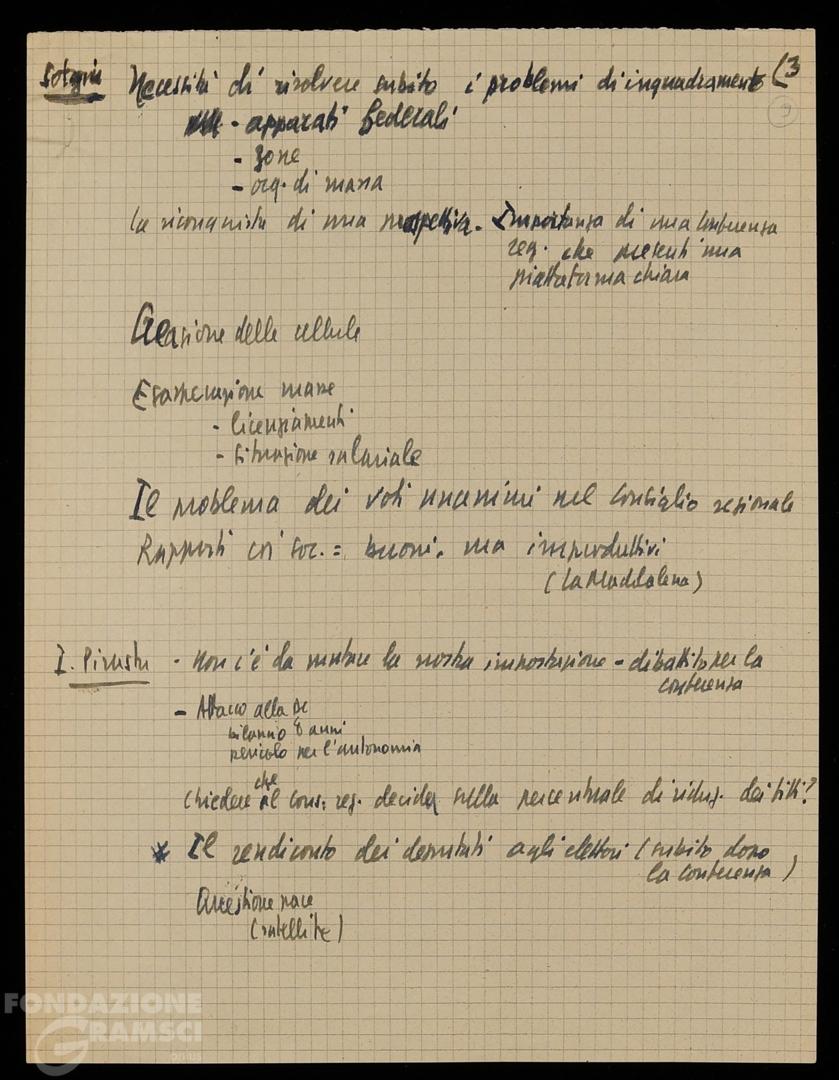 Sotgiu Necessità di risolvere subito i problemi di inquadramento (3
- apparati federali
- zone
- org. di massa
La riconquista di una prospettiva. - Importanza di una conferenza
reg. che presenti una
piattaforma chiara
Creazione delle cellule
Esasperazione masse
- licenziamenti
- situazione salariale
Il problema dei voti unanimi nel Consiglio regionale
Rapporti coi soc. = buoni, ma improduttivi
(La Maddalena)
I. Pirastu - Non c'è da mutare la nostra impostazione - dibattito per la
conferenza
- Attacco alla DC
bilancio 8 anni
pericolo per l'autonomia
Chiedere che il cons. reg. decida sulla percentuale di riduz. dei fitti?
* Il rendiconto dei deputati agli elettori (subito dopo
la conferenza)
Questione pace
(satellite)
FONDAZIONE
GRAMSCI